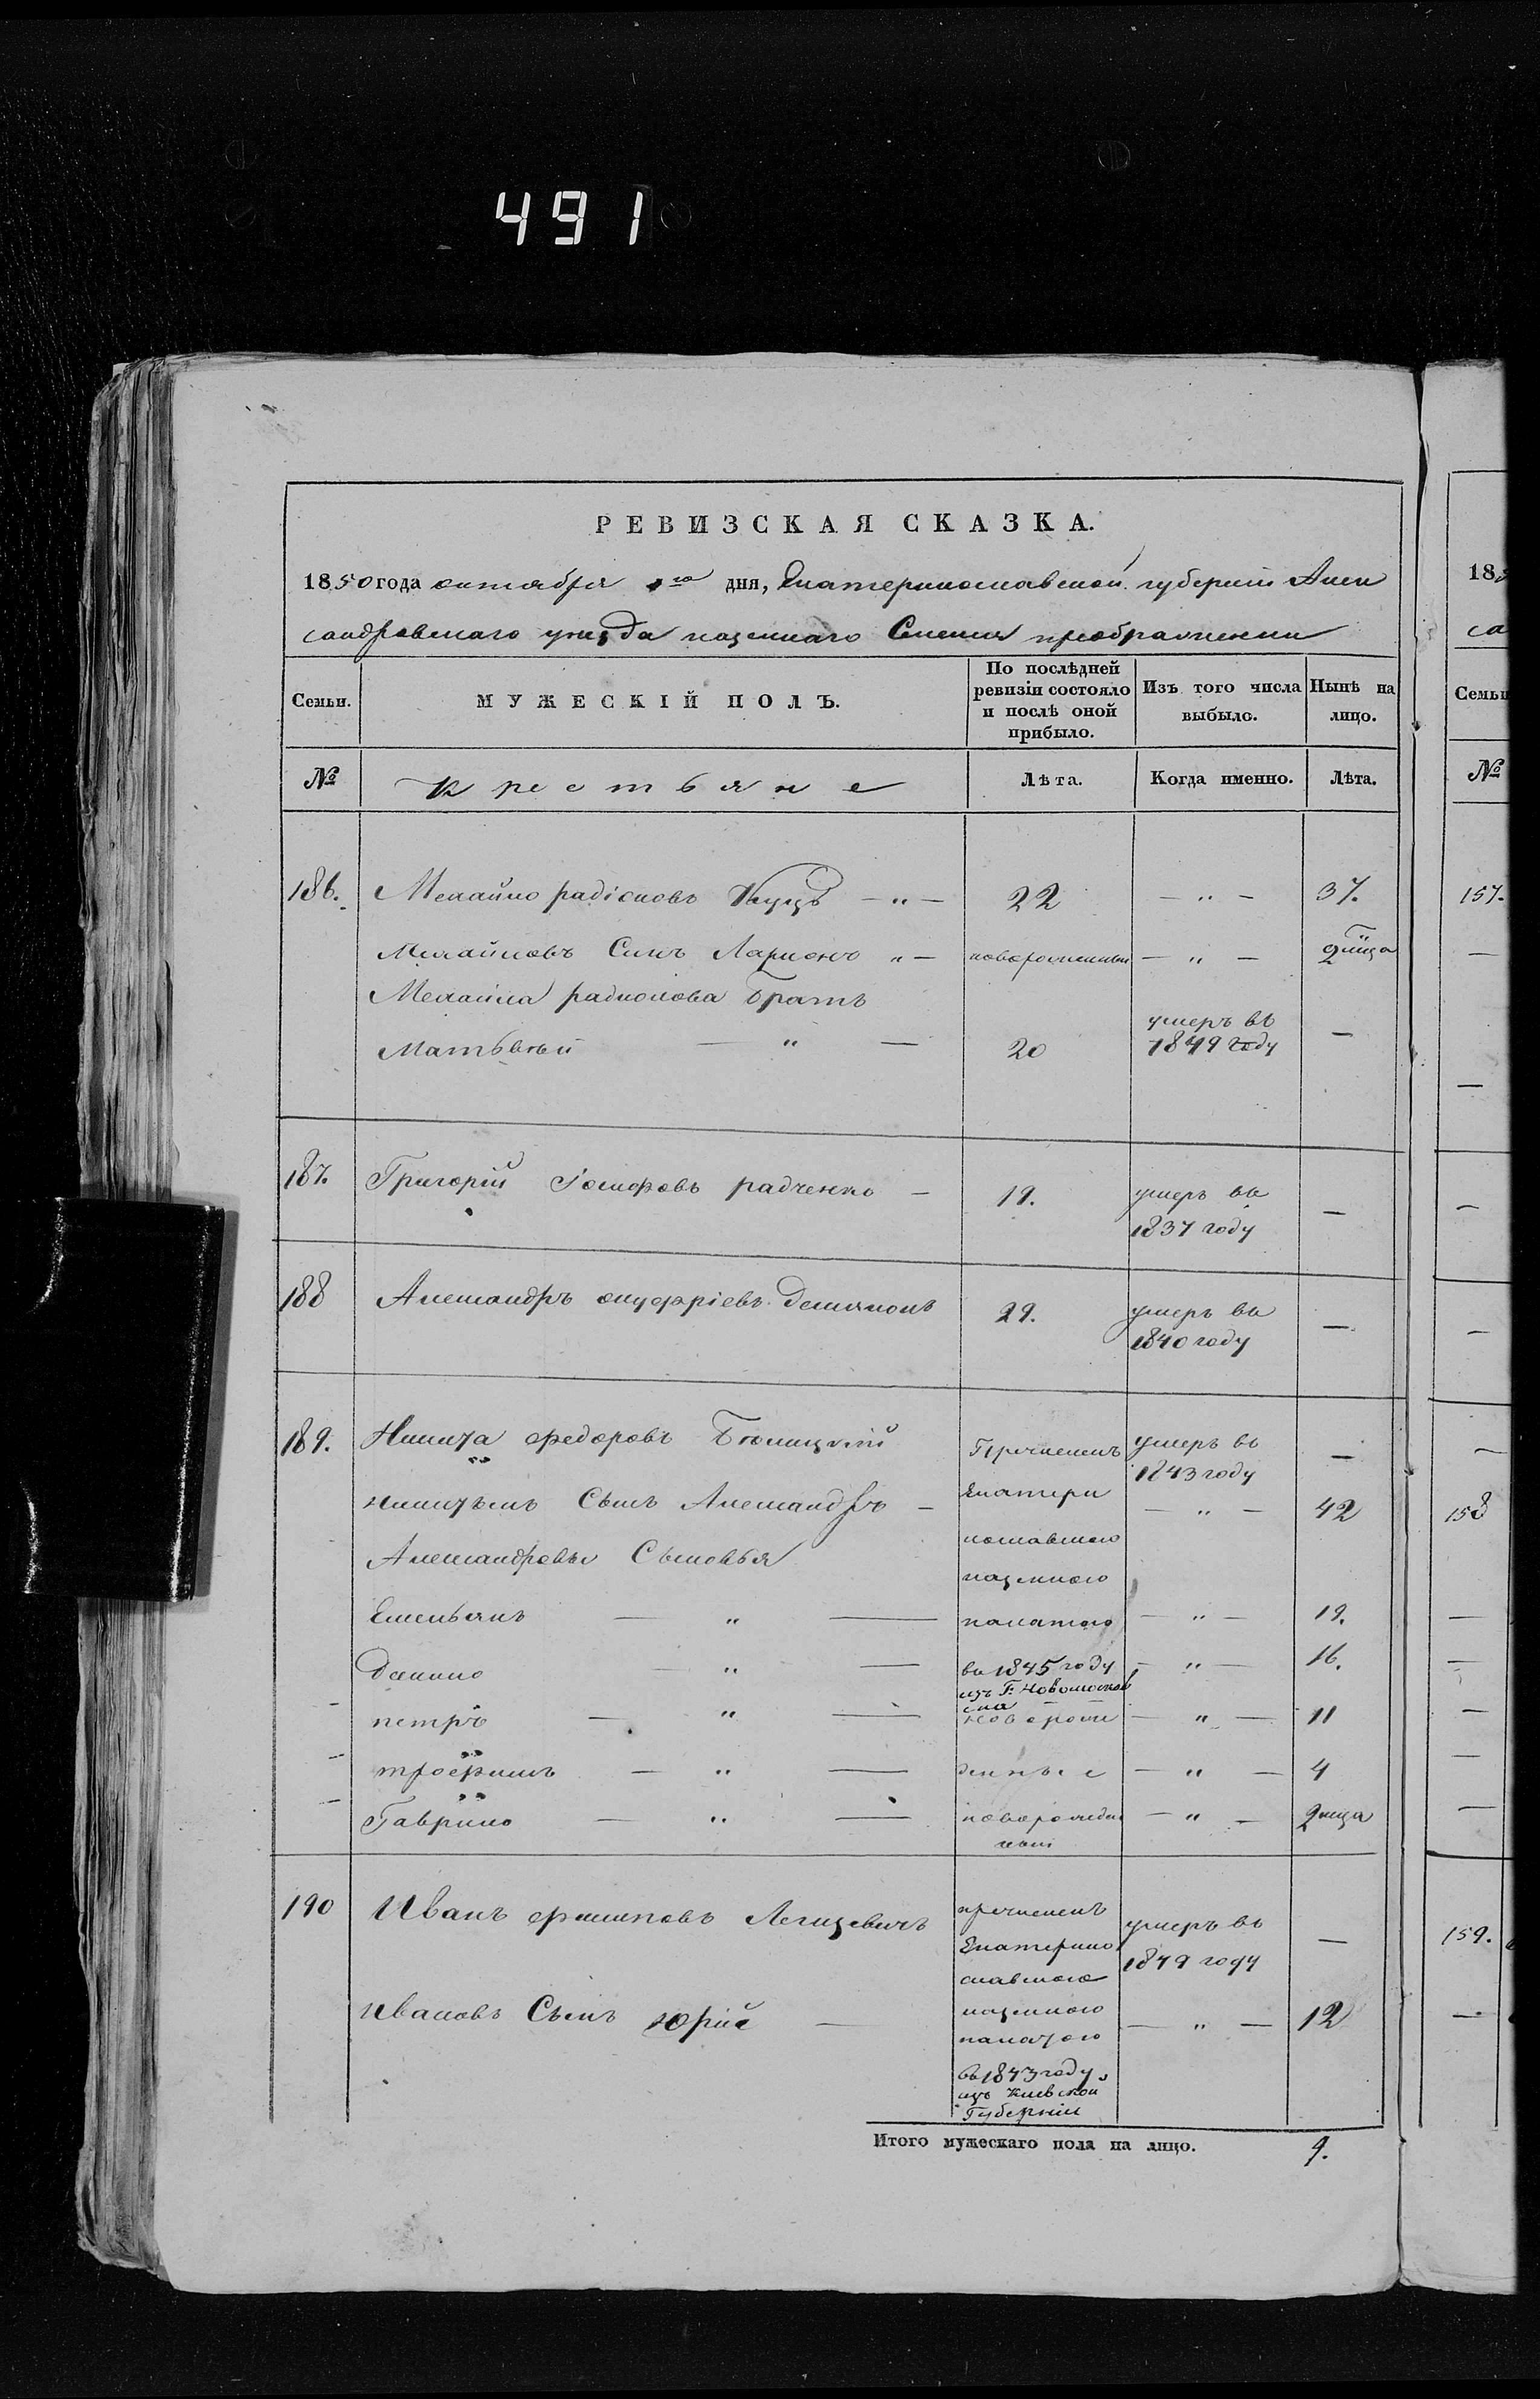 491
РЕВИЗСКАЯ СКАЗКА.
1850 года октября 1го дня, Екатеринославской губернии Алек
сандровскаго уезда казеннаго Селения преображенки
Семьи. МУЖЕСКІЙ ПОЛЪ. По послѣдней ревизіи состояло и послѣ оной прибыло. Изъ того числа выбыло. Нынѣ на лицо.
№ Крестьяне Лѣта. Когда именно. Лѣта.
186. Михайло радіоновъ Куцъ — " — 22 — " — 37.
Михайловъ Сынъ Ларионъ " — новорожденный — " — 2 мца
Михайла радионова Братъ
Матьвей — " — 20 умеръ въ 1849 году —
187. Григорій Іосифовъ радченко — 19. умеръ въ 1837 году —
188 Александръ онуфріевъ Демяновъ 29. умеръ въ 1840 году —
189. Никита федоровъ Билицкій Причисленъ умеръ въ 1843 году —
никитинъ Сынъ Александръ — Екатери — " — 42
нославскою
Александровы Сыновья казенною
Емельянъ — " — палатою — " — 19.
Данило — " — въ 1845 году — " — 16.
изъ Г. Новомосков
ска
петръ — " — новорож — " — 11
трофимъ — " — денные — " — 4
Гаврило — " — новорожден — " — 2 мца
ный
190 Иванъ филиповъ причисленъ умеръ въ 1849 году —
Екатерино
славскою
Ивановъ Сынъ Юрій — казенною — " — 12
палатою
въ 1843 году,
изъ Киевской
Губерніи
Итого мужескаго пола на лицо. 9.
18
са
Семьи
№
157.
158
159.